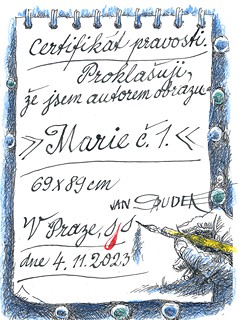 Certifikát pravosti.
Proklašuji,
že jsem autorem obrazu
»Marie č. 1.«
69x89cm
JAN
V Praze,
dne 4.11.2023